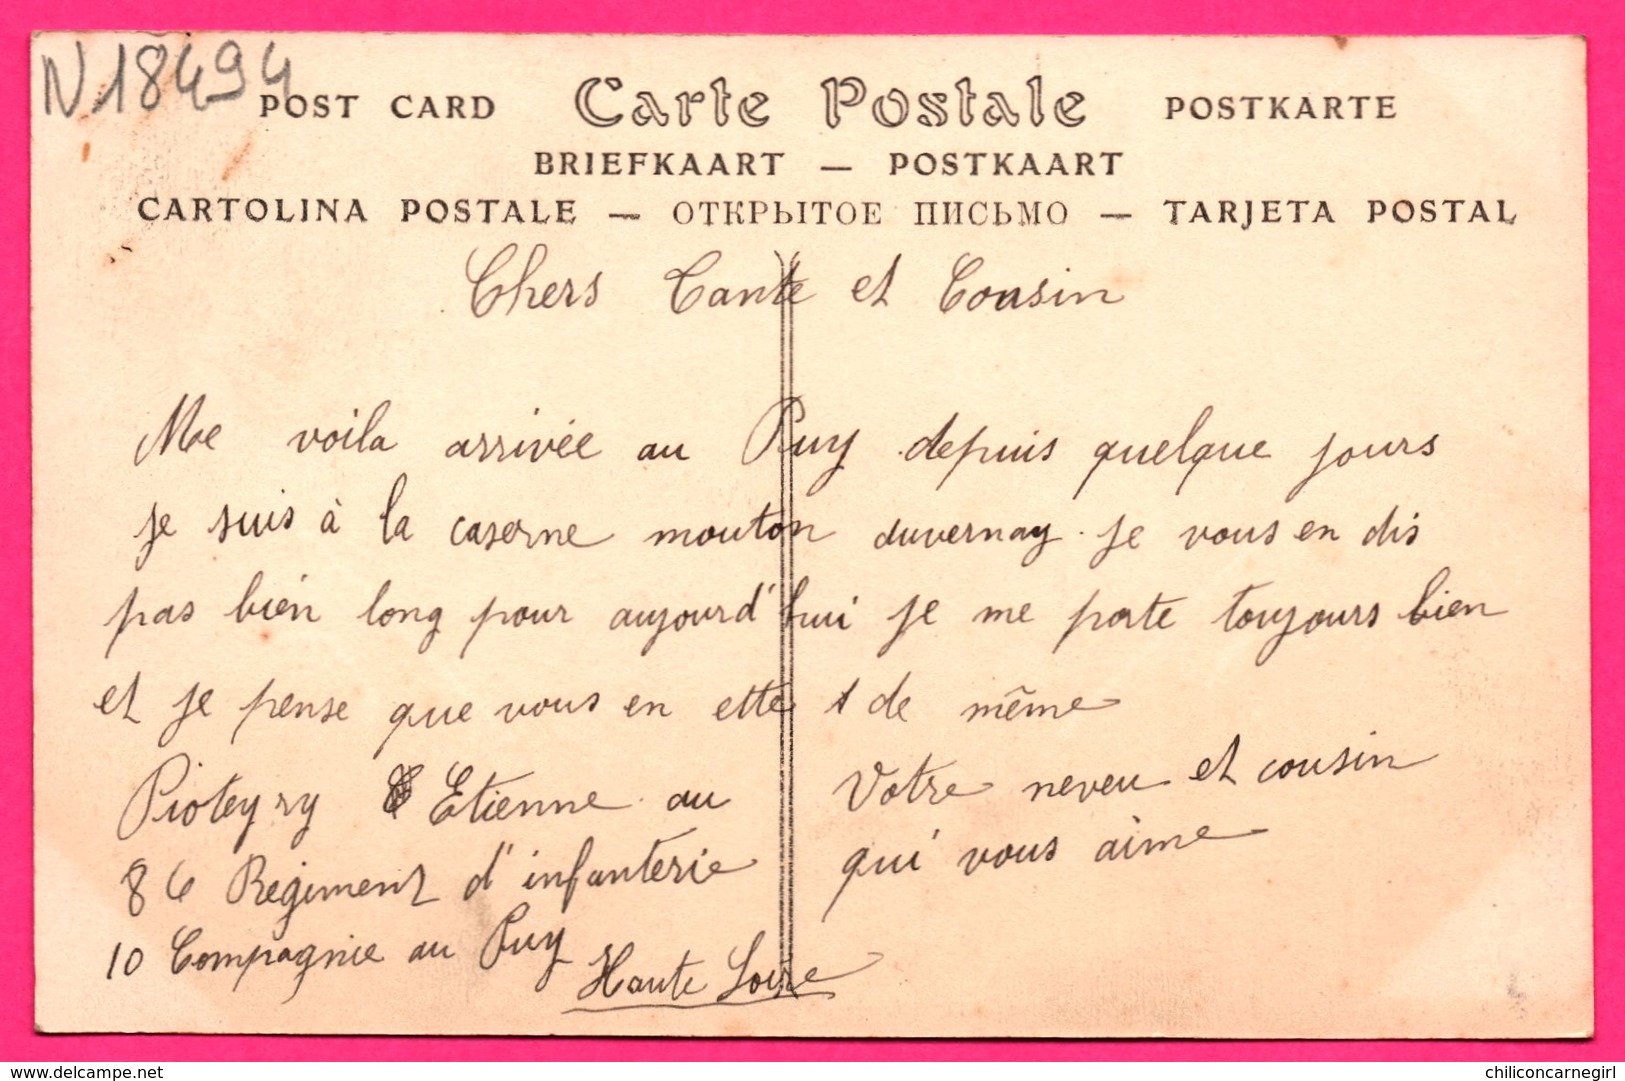 N 18494
POST CARD Carte Postale POSTKARTE
BRIEFKAART — POSTKAART
CARTOLINA POSTALE — ОТКРЫТОЕ ПИСЬМО — TARJETA POSTAL
Chers Tante et Cousin
Me voila arrivée au Puy depuis quelque jours
je suis à la caserne mouton duvernay. je vous en dis
pas bien long pour aujourd'hui je me porte toujours bien
et je pense que vous en ette t de même
Pioteyry Etienne au
86 Regiment d'infanterie
10 Compagnie au Puy
Haute Loire
Votre neveu et cousin
qui vous aime
delcampe.net
chiliconcarnegirl